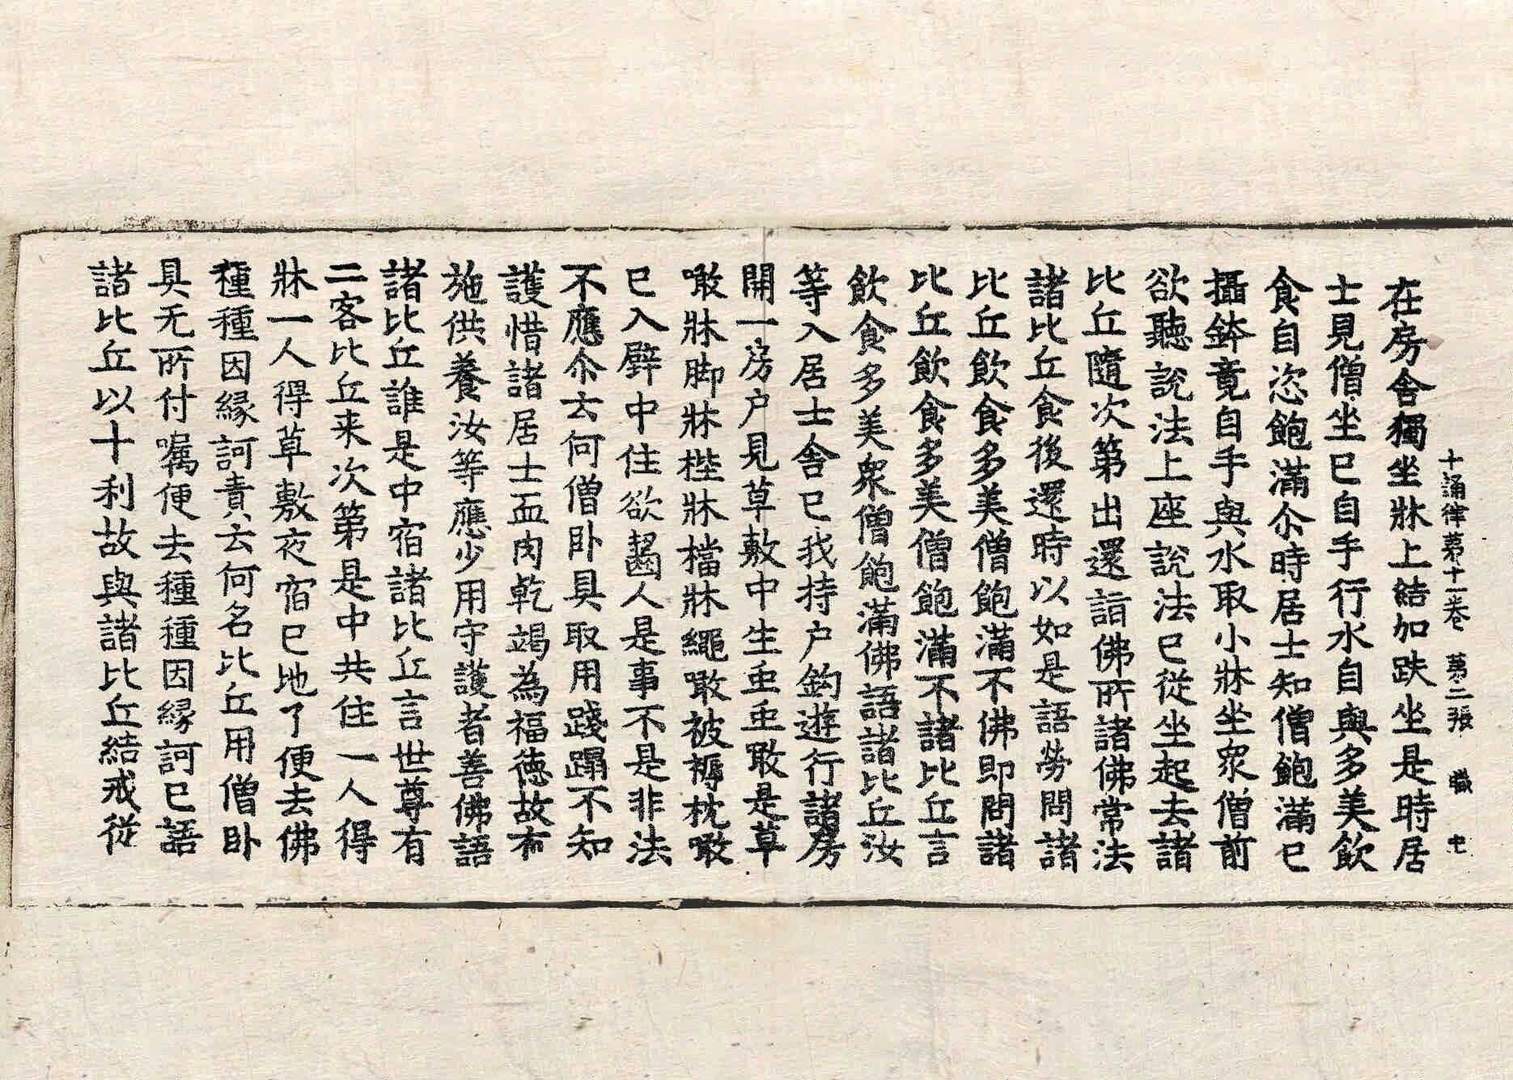 十誦律第十一卷 第二張 職 七
在房舍獨坐牀上結加趺坐是時居
士見僧坐已自手行水自與多美飲
食自恣飽滿尒時居士知僧飽滿已
攝鉢竟自手與水取小牀坐衆僧前
欲聽說法上座說法已從坐起去諸
比丘隨次第出還詣佛所諸佛常法
諸比丘食後還時以如是語勞問諸
比丘飲食多美僧飽滿不佛即問諸
比丘飲食多美僧飽滿不諸比丘言
飲食多美衆僧飽滿佛語諸比丘汝
等入居士舍已我持户鈎遊行諸房
開一房户見草敷中生虫虫噉是草
噉牀脚牀梐牀檔牀繩噉被褥枕噉
已入壁中住欲齧人是事不是非法
不應尒云何僧卧具取用踐蹋不知
護惜諸居士血肉乾竭為福德故布
施供養汝等應少用守護者善佛語
諸比丘誰是中宿諸比丘言世尊有
二客比丘来次第是中共住一人得
牀一人得草敷夜宿已地了便去佛
種種因緣訶責云何名比丘用僧卧
具无所付囑便去種種因緣訶已語
諸比丘以十利故與諸比丘結戒從